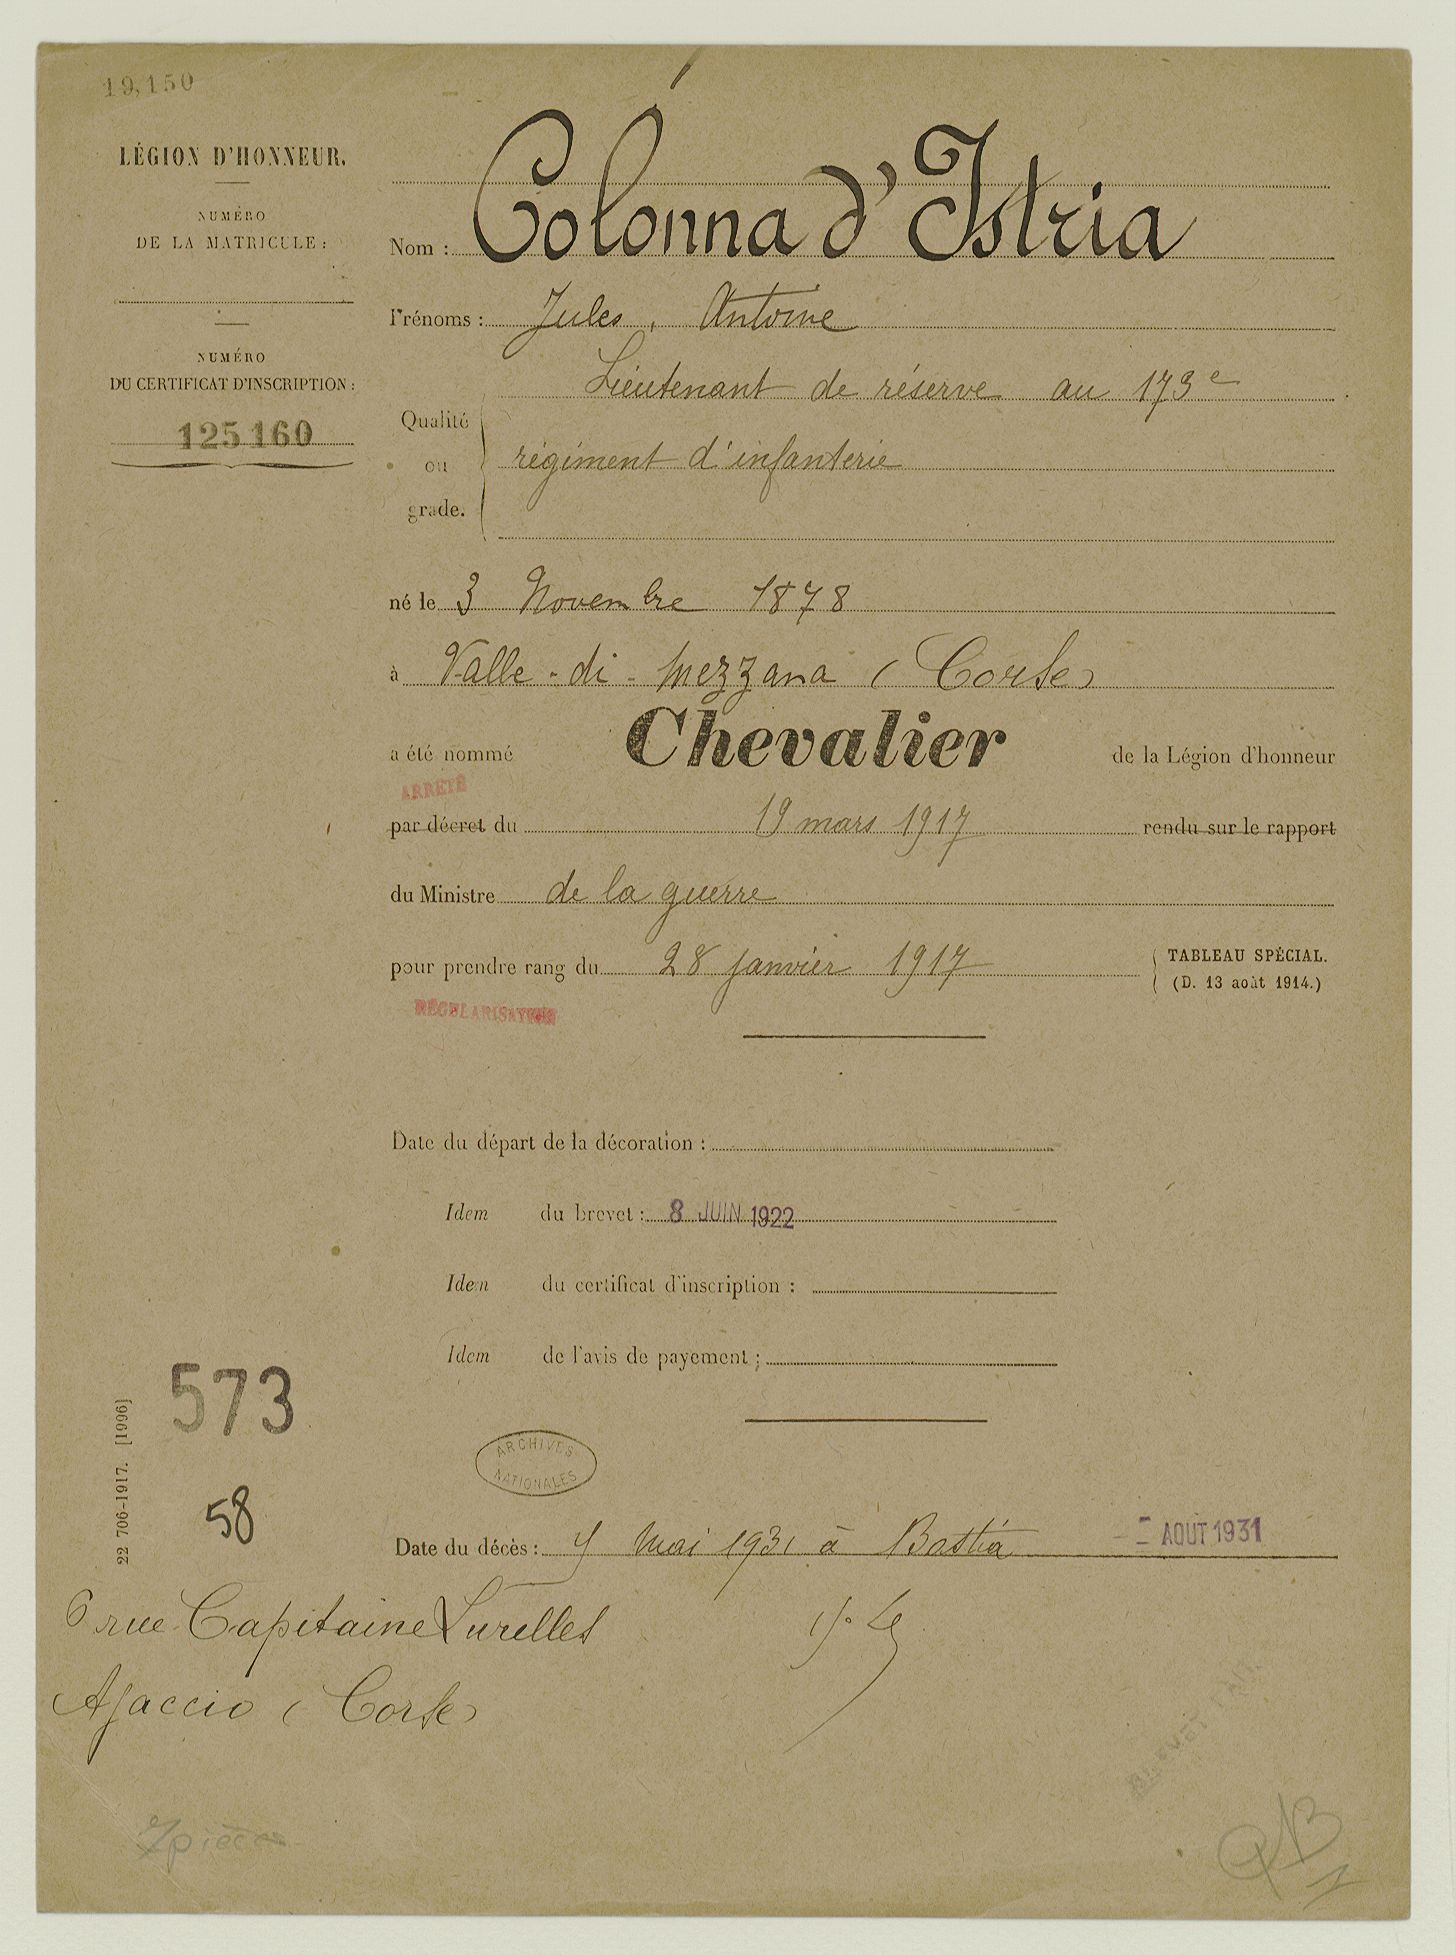 19,150
LÉGION D'HONNEUR.
NUMÉRO
DE LA MATRICULE :
NUMÉRO
DU CERTIFICAT D'INSCRIPTION :
125160
Nom : Colonna d'Istria
Prénoms : Jules, Antoine
Qualité ou grade. Lieutenant de réserve au 173e
régiment d'infanterie
né le 3 Novembre 1878
à Valle-di-Mezzana (Corse)
a été nommé Chevalier de la Légion d'honneur
ARRÊTÉ
par décret du 19 mars 1917 rendu sur le rapport
du Ministre de la guerre
pour prendre rang du 28 janvier 1917
TABLEAU SPÉCIAL.
(D. 13 août 1914.)
RÉGULARISATION
Date du départ de la décoration :
Idem du brevet : 8 JUIN 1922
Idem du certificat d'inscription :
Idem de l'avis de payement :
573
58
22 706-1917. [1996]
ARCHIVES
NATIONALES
Date du décès : Mai 1931 à Bastia
AOUT 1931
6 rue Capitaine
Ajaccio (Corse)
7 pièces
BREVET FAIT